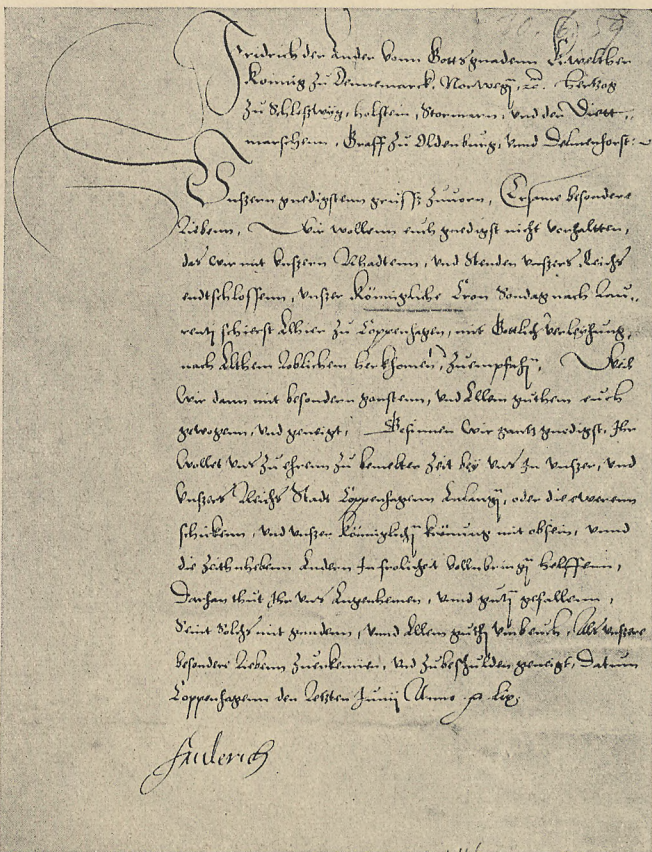 30. 6. 59
Fridrich der Ander vonn Gotts gnadenn Erwelter
Konnig zu Dennemarck, Norwegen, ꝛc. Hertzog
zu Schleßwyg, Holstein, Stormarn, und der Diett-
marschenn, Graff zu Oldenburg, unnd Delmenhorst:
Unszern gnedigstenn grusz zuuorn, Ersame besondere
Liebenn, Wir wollenn euch gnedigst nicht verhaltten,
das wir mit unszern Rhadtenn, und Stenden unszers Reichs
endtschlossenn, unszer Könnigliche Cron Sondag nach Lau-
rentij schierst Alhier zu Coppenhagen, mit Gottlich verleyhung,
nach Althem loblichem herkhomen, zu empfahen, Weil
wir dann mit besondern gonstenn, und Allem guthem euch
gewogenn, und geneigt, Gesinnen wir gantz gnedigst, Ihr
wollet uns zu ehrenn zu benentter Zeit bey uns In unszer, und
unszers Reichs Stadt Coppenhagenn, oder die ewerenn
schickenn, und unszer Königlichen krönung mit obsein, unnd
die Zeith nebenn Andern In frolicheit vollnbringen helffenn,
Daran thut Ihr uns Angenhemen, unnd guten gefallenn,
Seint Solchs mit gnadenn, unnd Allem guthen umb euch, Als unszere
besondere liebenn zuerkennen, und zubeschulden geneigt, Datum
Coppenhagenn den letzten Junij Anno ꝛc. lix.
Friderich